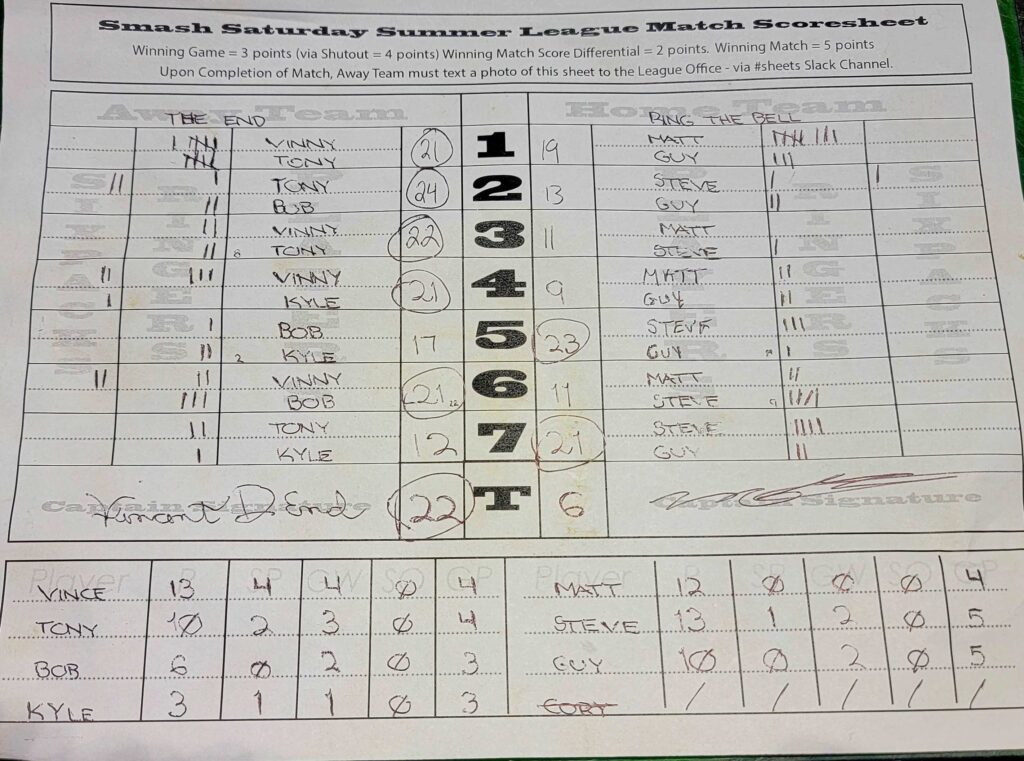 Smash Saturday Summer League Match Scoresheet
Winning Game = 3 points (via Shutout = 4 points) Winning Match Score Differential = 2 points. Winning Match = 5 points
Upon Completion of Match, Away Team must text a photo of this sheet to the League Office - via #sheets Slack Channel.
Away Team Home Team
THE END RING THE BELL
VINNY 21 1 19 MATT
TONY GUY
TONY 24 2 13 STEVE
BOB GUY
VINNY 22 3 11 MATT
TONY STEVE
VINNY 21 4 9 MATT
KYLE GUY
BOB 17 5 23 STEVE
KYLE GUY
VINNY 21 22 6 11 MATT
BOB STEVE
TONY 12 7 21 STEVE
KYLE GUY
SIXPACKS RINGERS RINGERS SIXPACKS
Captain Signature 22 T 6 Captain Signature
Vincent D End
Player R SP GW SO GP Player R SP GW SO GP
VINCE 13 4 4 0 4 MATT 12 0 0 0 4
TONY 10 2 3 0 4 STEVE 13 1 2 0 5
BOB 6 0 2 0 3 GUY 10 0 2 0 5
KYLE 3 1 1 0 3 CORY / / / / /